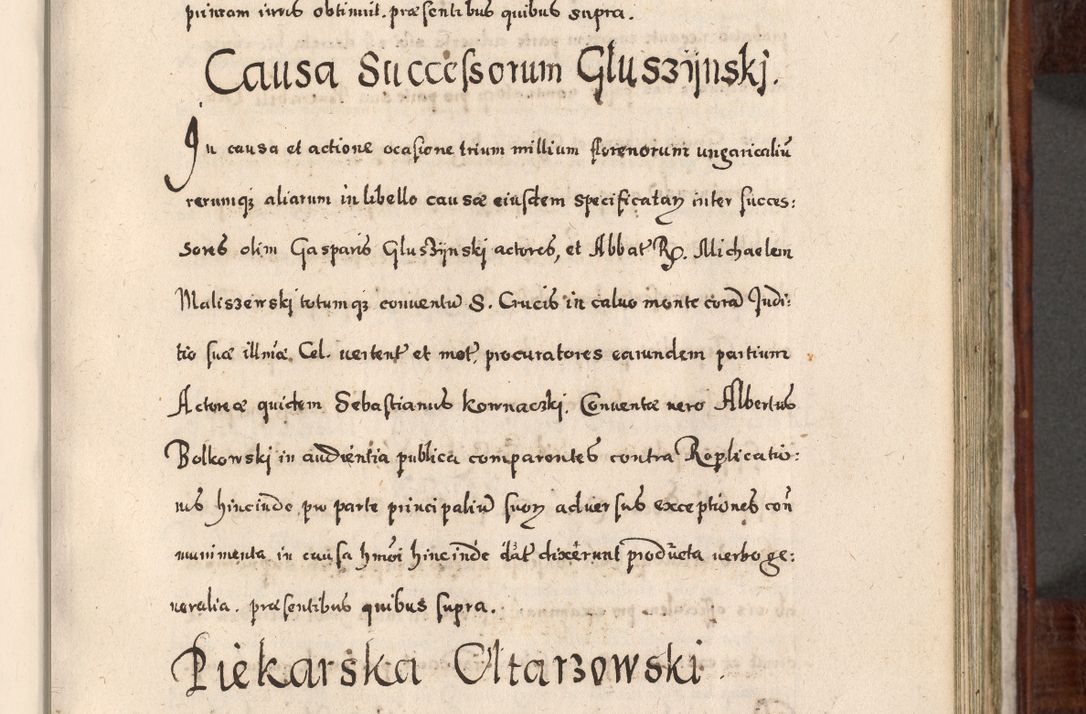 primam iuris obtinuit. præsentibus quibus supra.
Causa Successorum Gluszÿnskj.
In causa et actione ocasione trium millium florenorum ungaricaliũ
rerumqꝫ aliarum in libello causæ eiusdem specificataꝝ inter succes:
sores olim Gasparis Gluszÿnski actores, et Abbat R. Michaelem
Maliszewski totumqꝫ conventũ S. Crucis in calvo monte corã Judi:
tio suæ illmæ Cel. vertent et mot, procuratores earundem partium
Actoreæ quidem Sebastianus Kownaczki. Conventæ vero Albertus
Bolkowski in audientia publica comparentes contra Replicatio:
nis hincinde pro parte principaliũ suoꝝ adversus exceptiones coñ
munimenta in causa hmoi hincinde dat dixerunt producta verbo ge:
neralia. præsentibus quibus supra.
Piekarska Oltarzowski.